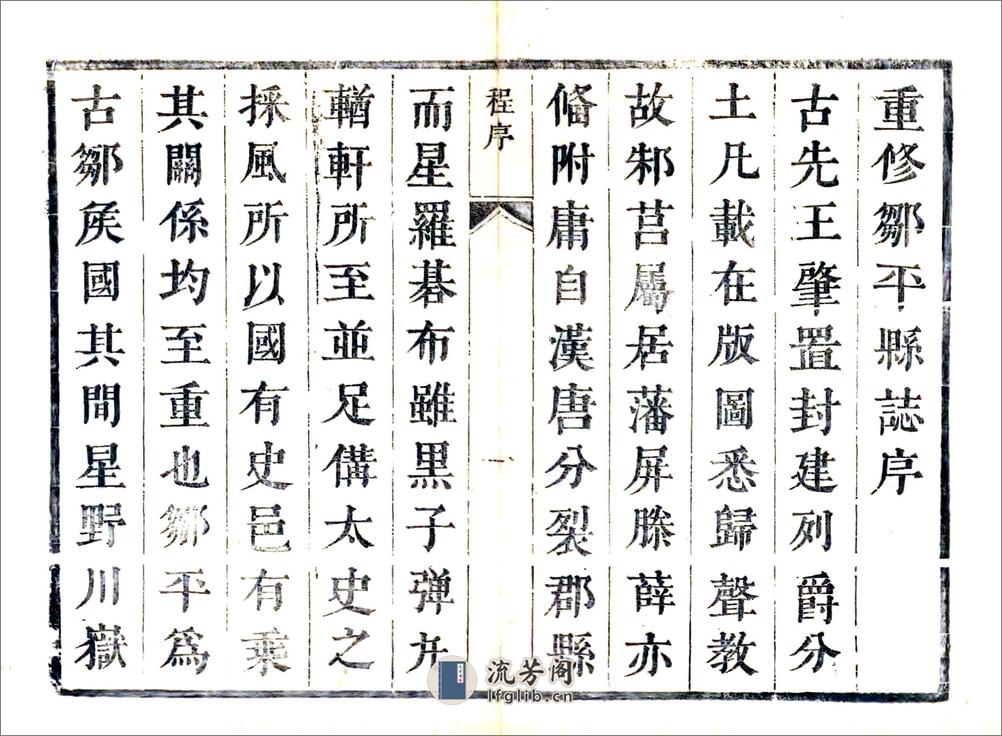 重修鄒平縣誌序
古先王肇置封建列爵分
土凡載在版圖悉歸聲教
故邾莒屬居藩屏滕薛亦
俻附庸自漢唐分裂郡縣
程序
一
而星羅碁布雖黒子弹丸
輶軒所至並足備太史之
採風所以國有史邑有乗
其關係均至重也鄒平爲
古鄒矦國其間星野川嶽
流芳阁
lfglib.cn